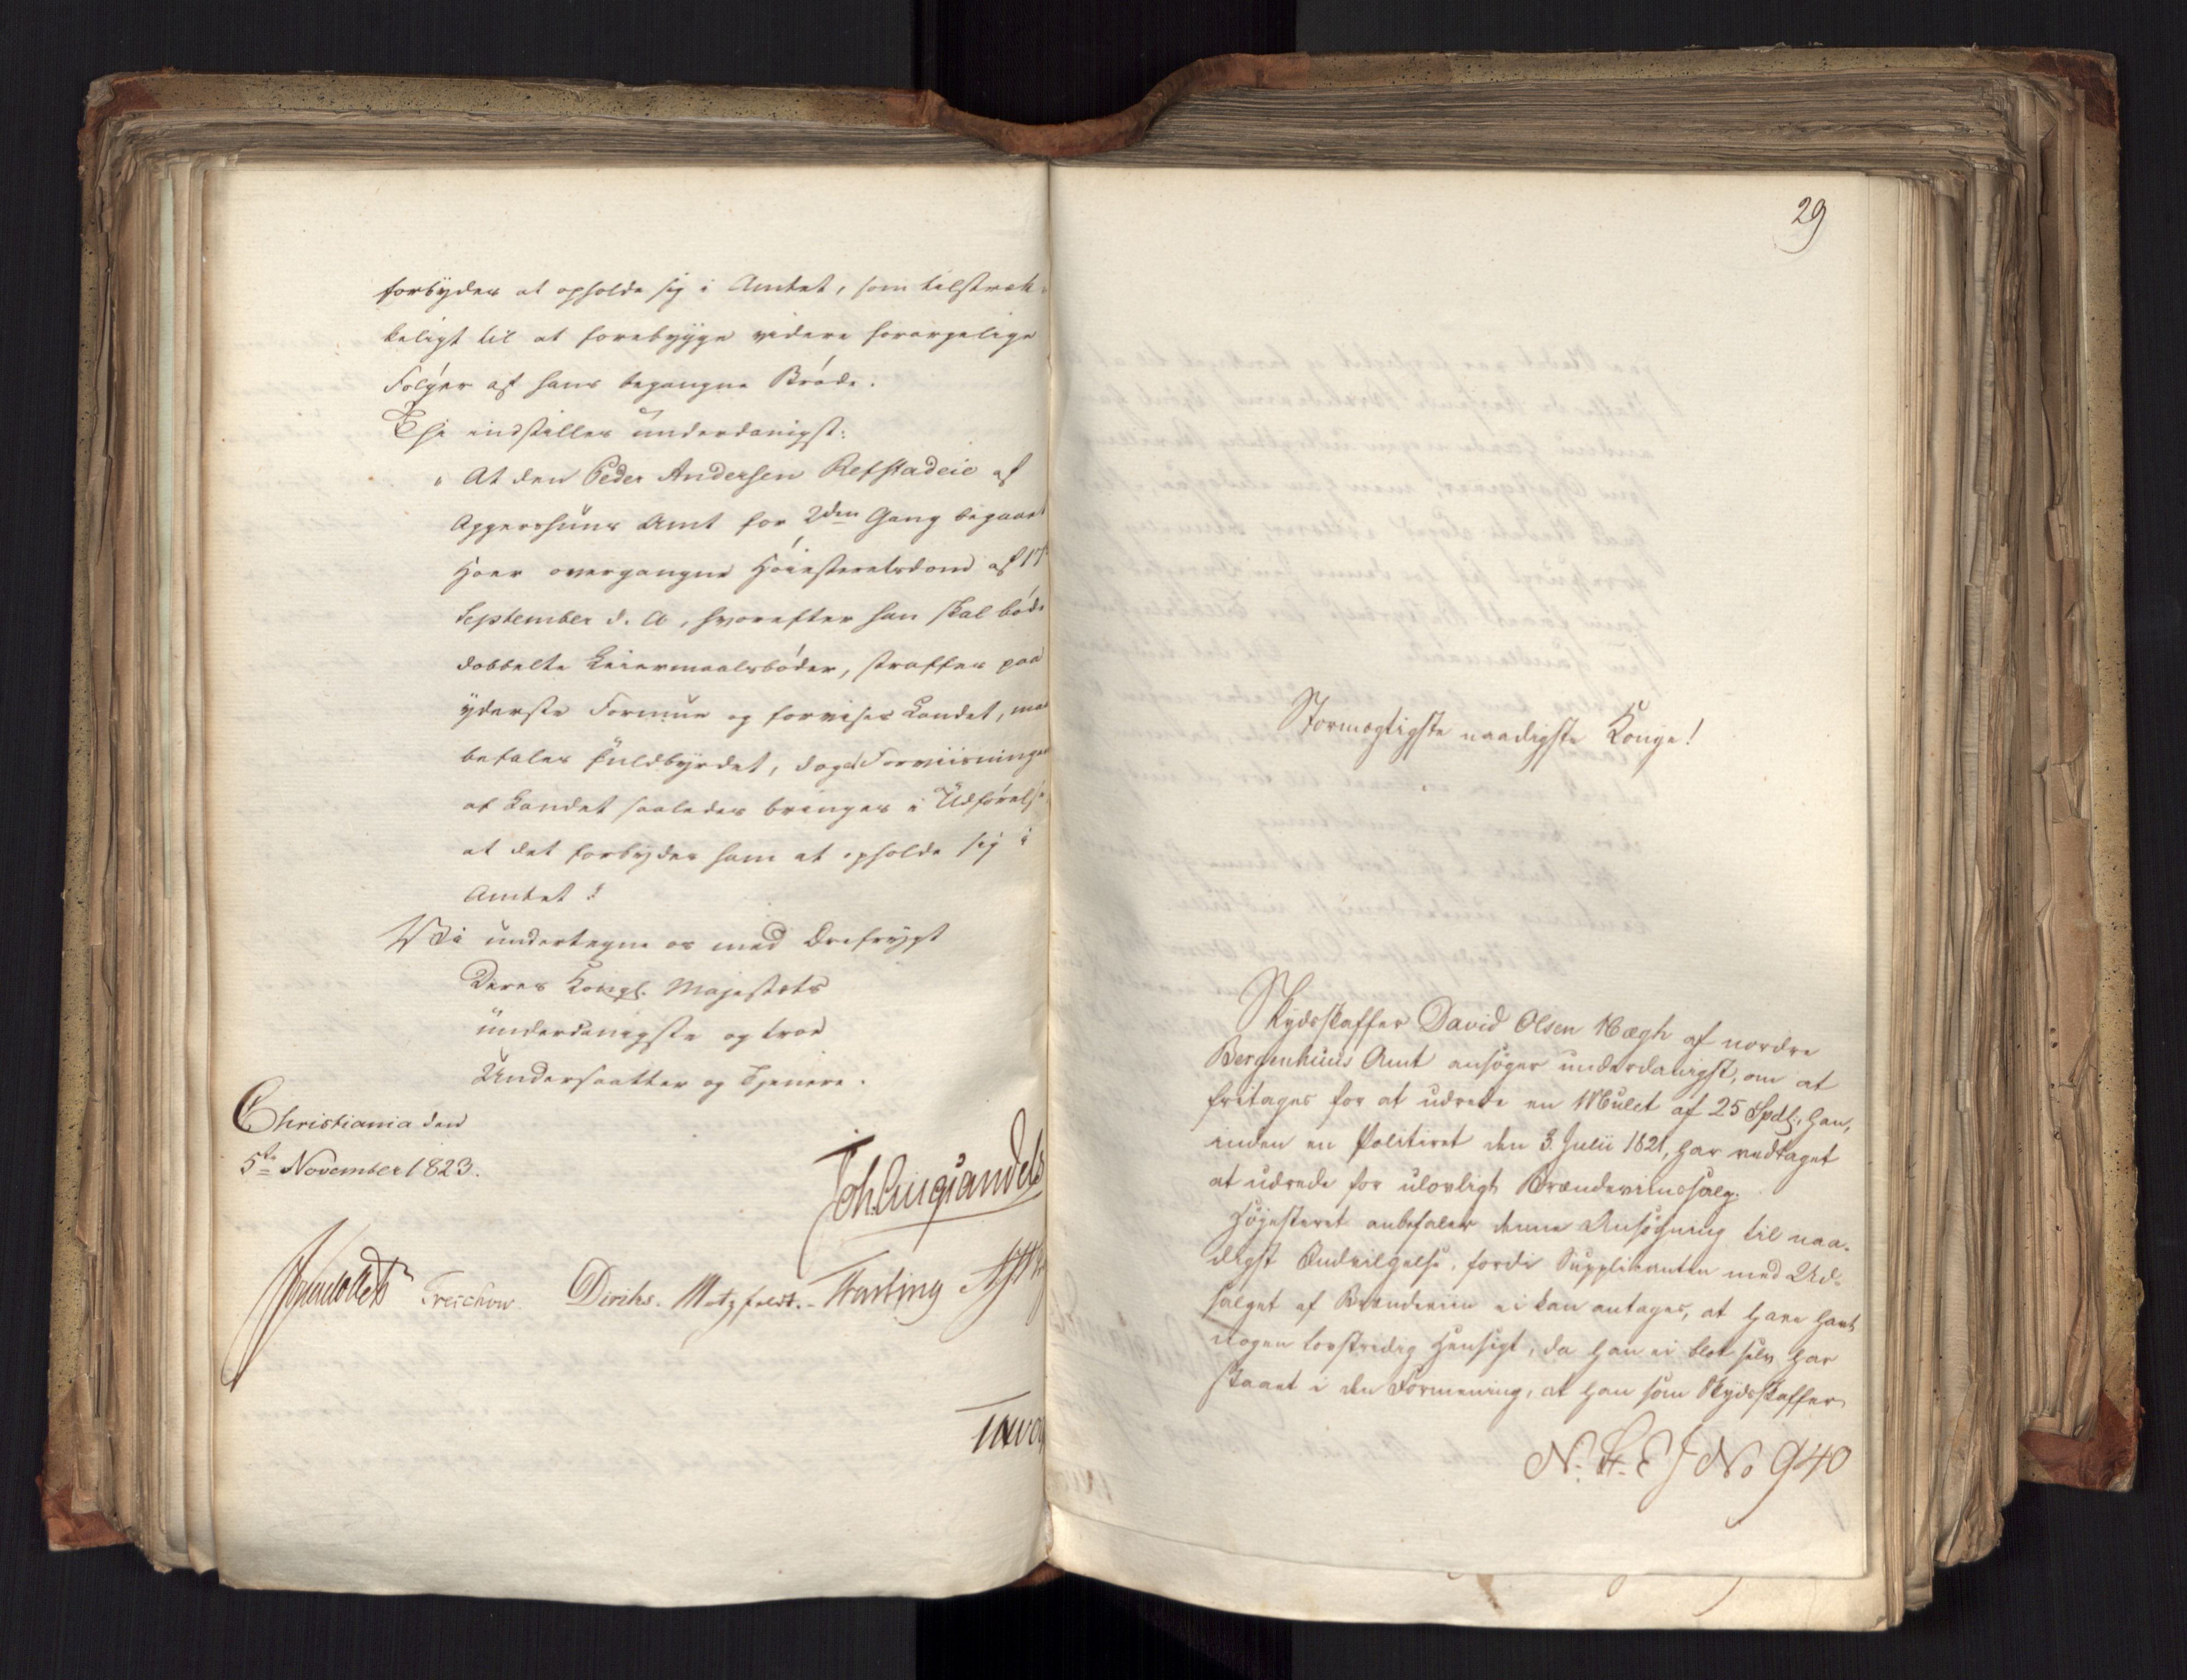 forbydes at opholde sig i Amtet, som tilstræk-
keligt til at forebygge videre forargelige
Følger af hans begangne Brøde.
Thi indstilles underdanigst:
"At den Peder Andersen Refstadeie af
Aggershuus Amt for 2den Gang begaaet
Hoer overgangne Høiesteretsdom af 17
September d. A., hvorefter han skal bøde
dobbelte Leiermaalsbøder, straffes paa
yderste Formue og forvises Landet, maa
befales fuldbyrdet, dog at Forviisningen
af Landet saaledes bringes i Udførelse,
at det forbydes ham at opholde sig i
Amtet!
Vi undertegne os med Ærefrygt
Deres Kongl. Majestæts
underdanigste og troe
Undersaatter og Tjenere.
Christiania den
5te November 1823.
Treschow. Diriks. Motzfeldt.
29
Stormægtigste naadigste Konge!
Skydsskaffer David Olsen Nægh af nordre
Bergenhuus Amt ansøger underdanigst, om at
fritages for at udrede en Mulct af 25 Spdlr, han,
inden en Politiret den 3 Julii 1821, har vedtaget
at udrede for ulovligt Brændeviinssalg.
Højesteret anbefaler denne Ansøgning til naa-
digst Indvilgelse, fordi Supplikanten med Ud-
salget af Brændeviin ei kan antages, at have havt
nogen lovstridig Hensigt, da han ei blot selv har
staaet i den Formening, at han som Skydsskaffer
No 940